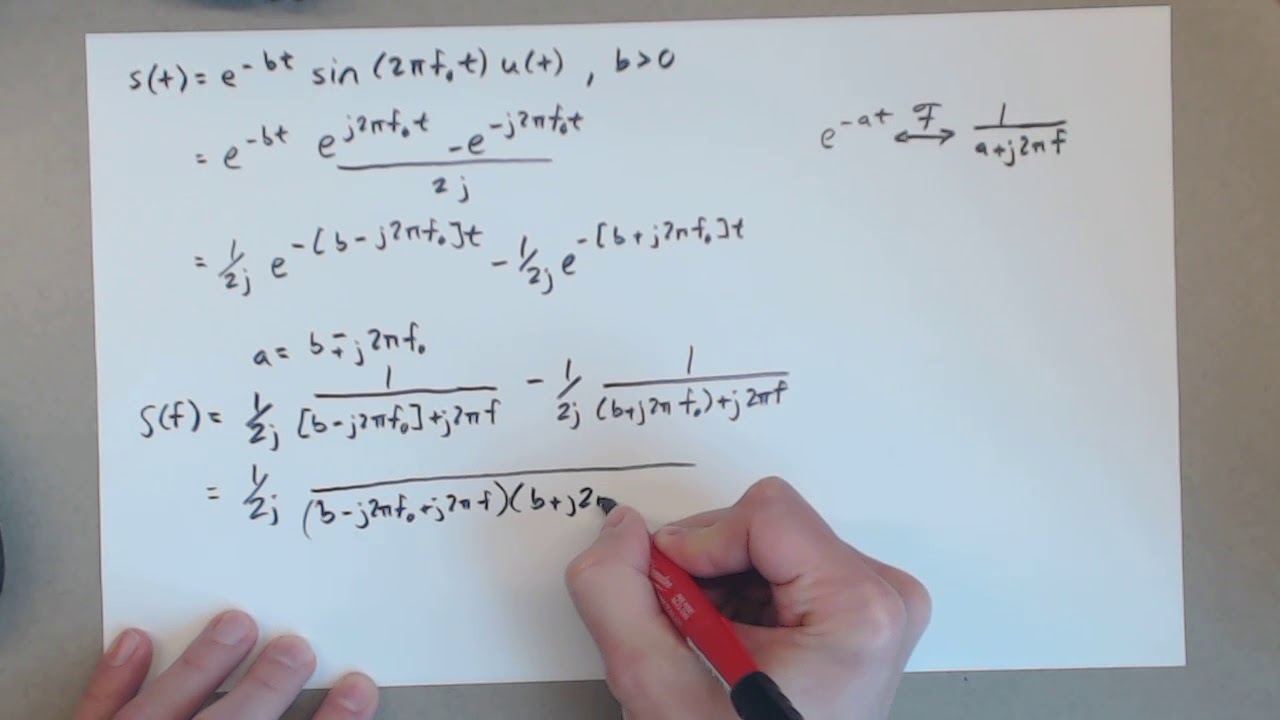 s(t) = e^{-bt} sin (2πf₀t) u(t) , b>0
e^{-at} ⟷^{ℱ} 1/(a+j2πf)
= e^{-bt} (e^{j2πf₀t} - e^{-j2πf₀t})/(2j)
= 1/2j e^{-[b-j2πf₀]t} - 1/2j e^{-[b+j2πf₀]t}
a = b∓j2πf₀
S(f) = 1/2j 1/([b-j2πf₀]+j2πf) - 1/2j 1/((b+j2πf₀)+j2πf)
= 1/2j /(b-j2πf₀+j2πf)(b+j2π